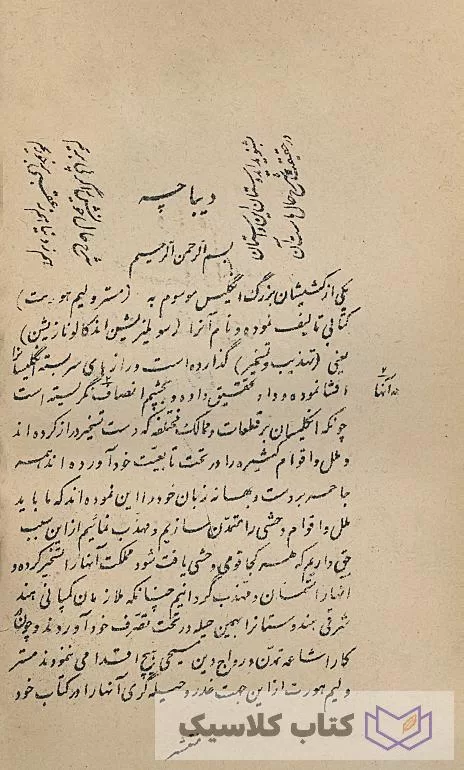 دیباچه
بشنوید ای دوستان این داستان
در حقیقت نقد حال ماست آن
بسم الله الرحمن الرحیم
یکی از کشیشان بزرگ انگلیس موسوم به (مستر ولیم هورت)
کتابی تألیف نموده و نام آنرا (سولیزیشن اند کالونازیشن)
یعنی (تهذیب و تسخیر) گذارده است و رازهای سربسته انگلیسانرا
افشا نموده و داد تحقیق داده و بچشم انصاف نگریسته است
چونکه انگلیسان بر قطعات و ممالک مختلفه که دست تسخیر دراز کرده اند
و ملل و اقوام کثیره را در تحت تابعیت خود آورده اند همه
جا حربه دست و بهانه زبان خود را این نموده اند که ما باید
ملل و اقوام وحشی را متمدن سازیم و مهذب نمائیم از این سبب
حق داریم که هر کجا قومی وحشی یافت شود مملکت آنها را تسخیر کرده و
آنها را متمدن و مهذب گردانیم چنانکه ملازمان کمپانی هند
شرقی هندوستانرا بهمین حیله در تحت تصرف خود آوردند و چون در
کار اشاعه تمدن و رواج دین مسیحی هیچ اقدامی ننمودند مستر
ولیم هورت از این جهت غدر و حیله گری آنها را در کتاب خود
کتاب کلاسیک